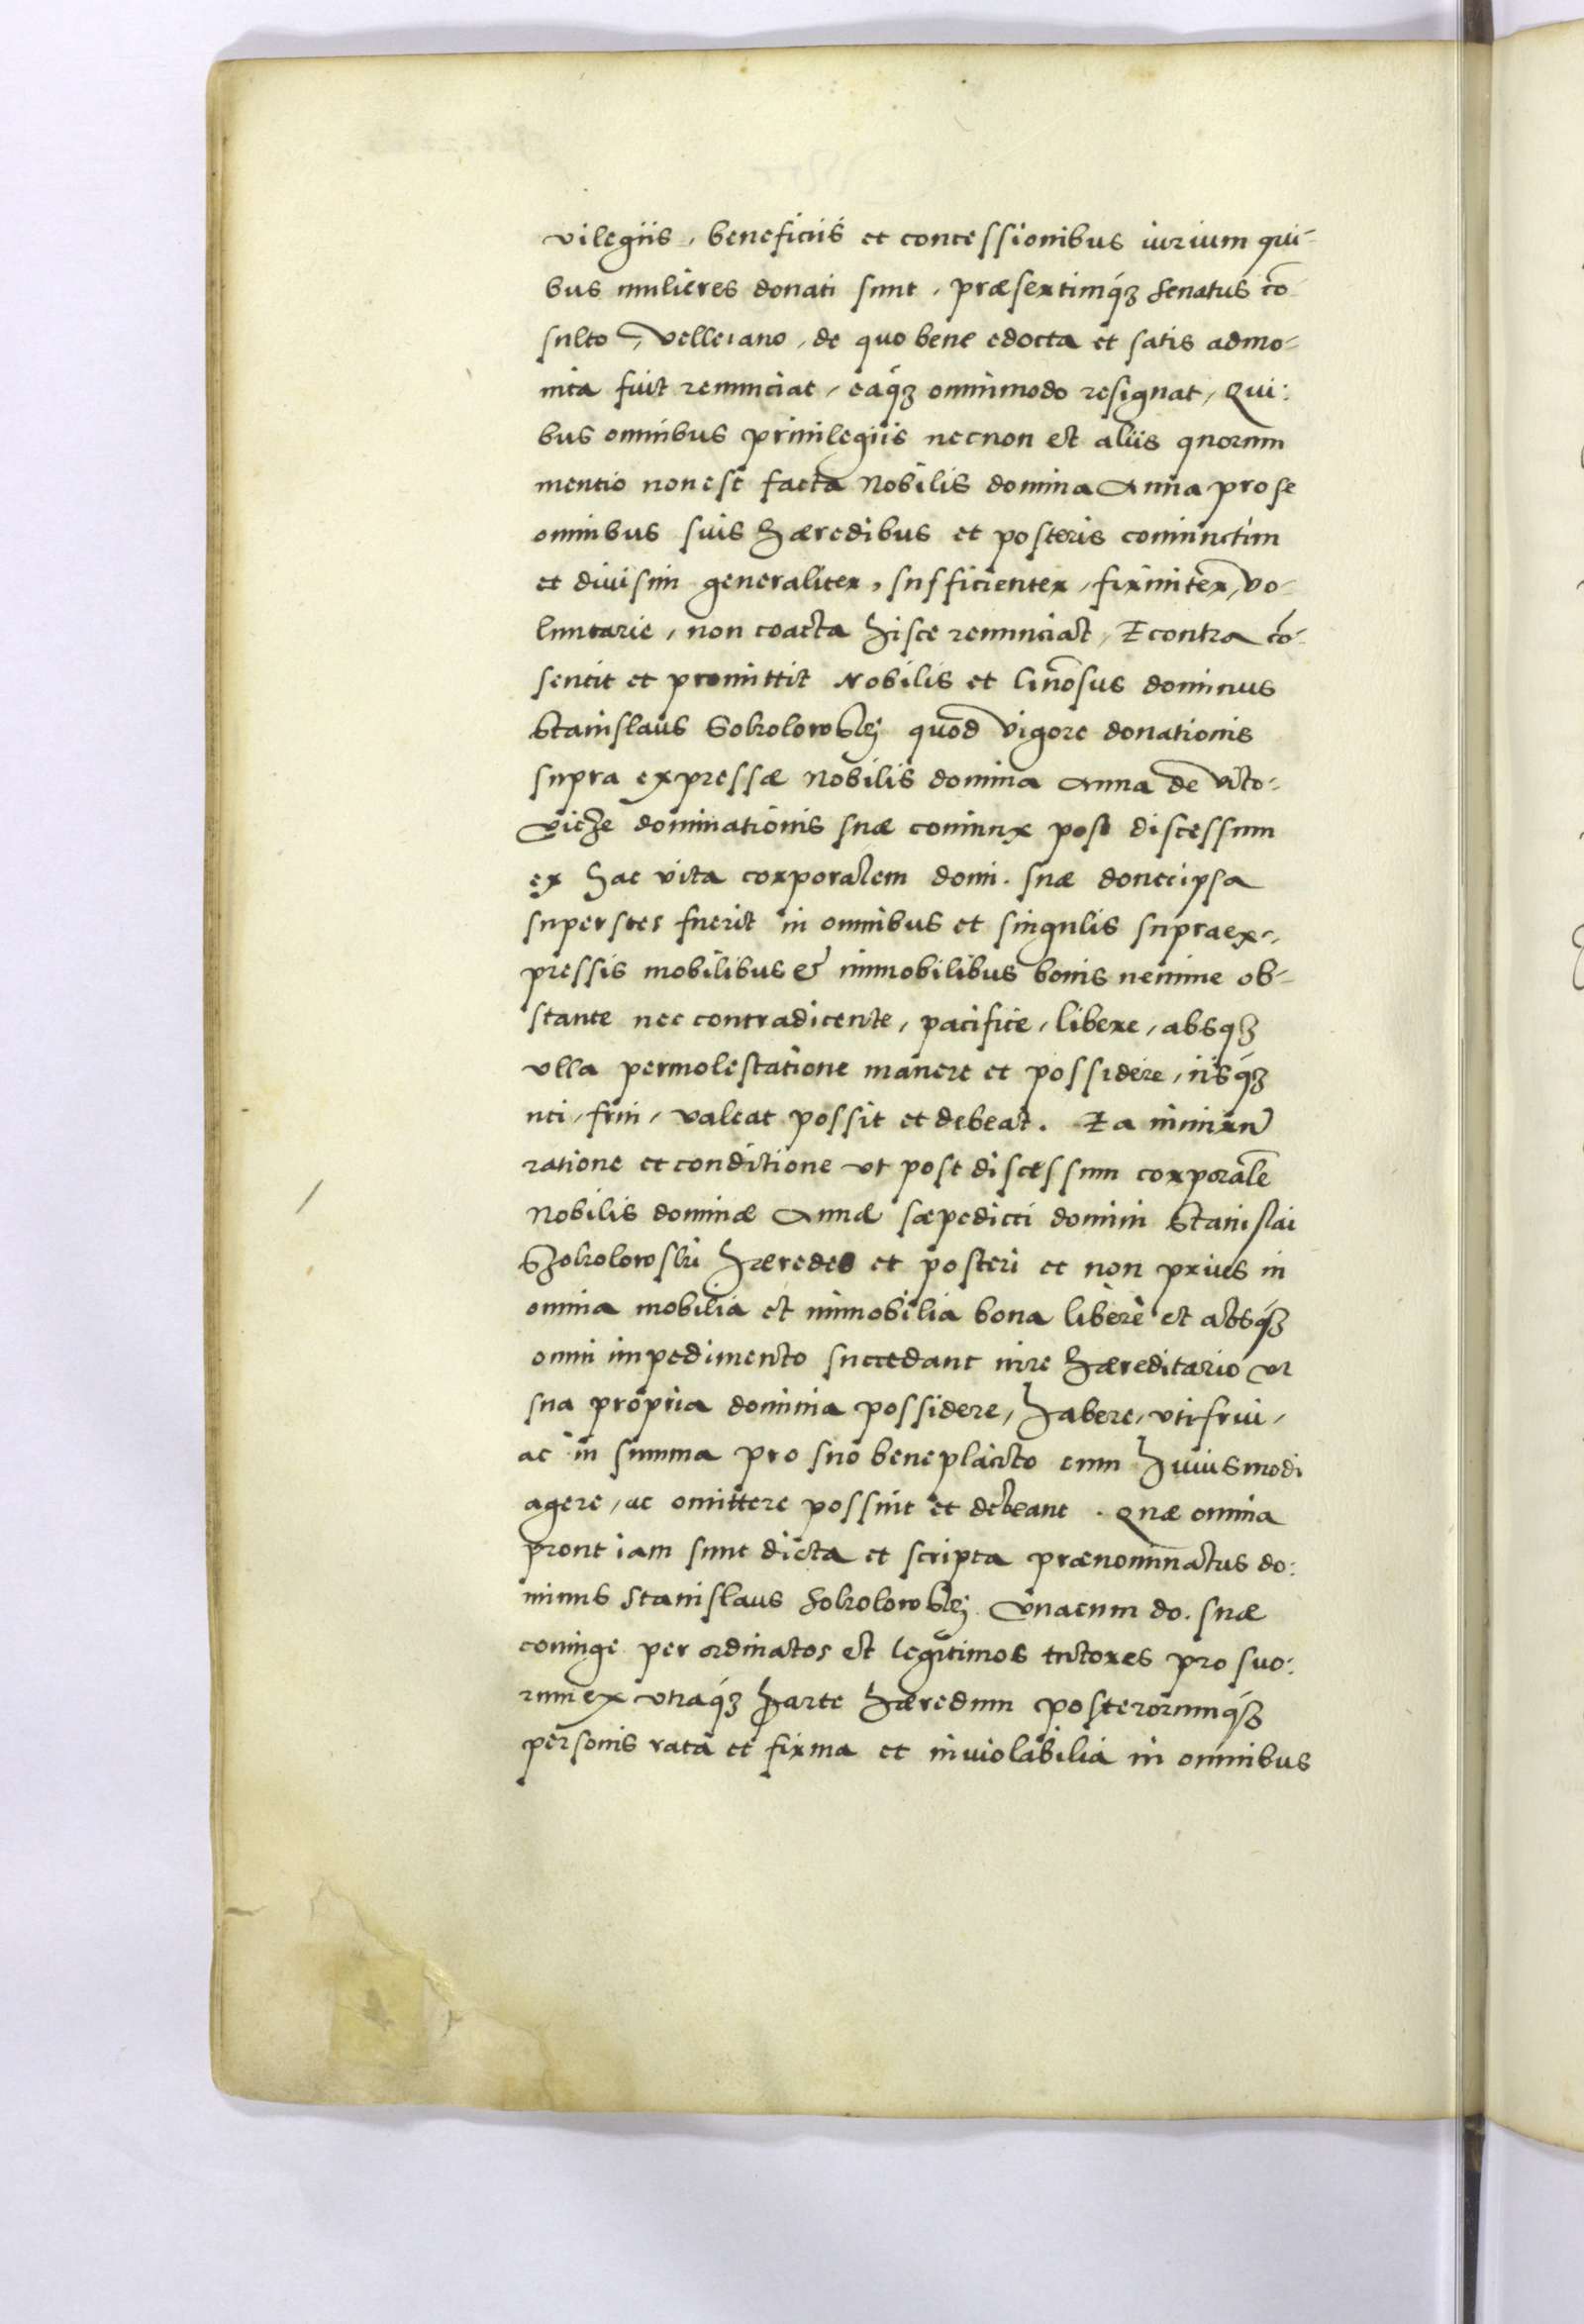 vilegiis, beneficiis et concessionibus iurium qui-
bus mulieres donati sunt, præsertimqȝ Senatus cō
sulto, Velleiano, de quo bene edocta et satis admo-
nita fuit renunciat, eaqȝ omnimodo resignat, Qui:
bus omnibus priuilegiis necnon et aliis quorum
mentio non est facta Nobilis domina Anna pro se
omnibus suis hæredibus et posteris coniunctim
et diuisim generaliter, sufficienter, firmiter, vo-
luntarie, non coacta hisce renunciat, E contra cō-
sentit et promittit Nobilis et Gñosus dominus
Stanislaus Sokolowskj quod vigore donationis
supra expressæ Nobilis domina Anna de Vito-
vicze dominationis suæ coniunx post discessum
ex hac vita corporalem domi. suæ donec ipsa
superstes fuerit in omnibus et singulis supraex-
pressis mobilibus & immobilibus bonis nemine ob-
stante nec contradicente, pacifice, libere, absqȝ
vlla permolestatione manere et possidere, iisqȝ
uti, frui, valeat possit et debeat. Ea nimirū
ratione et conditione vt post discessum corporalē
Nobilis dominæ Annæ sæpedicti domini Stanislai
Szokolowski hæredes et posteri et non prius in
omnia mobilia et immobilia bona libere et absqȝ
omni impedimento succedant iure hæreditario vt
sua propria dominia possidere, habere, vti frui,
ac in summa pro suo beneplacito cum huiusmodi
agere, ac omittere possint et debeant. Quæ omnia
prout iam sunt dicta et scripta prænominatus do:
minus Stanislaus Sokolowskj vnacum do. suæ
coniuge per ordinatos et legitimos tutores pro suo:
rum ex vtraqȝ parte hæredum posterorumqȝ
personis rata et firma et inuiolabilia in omnibus